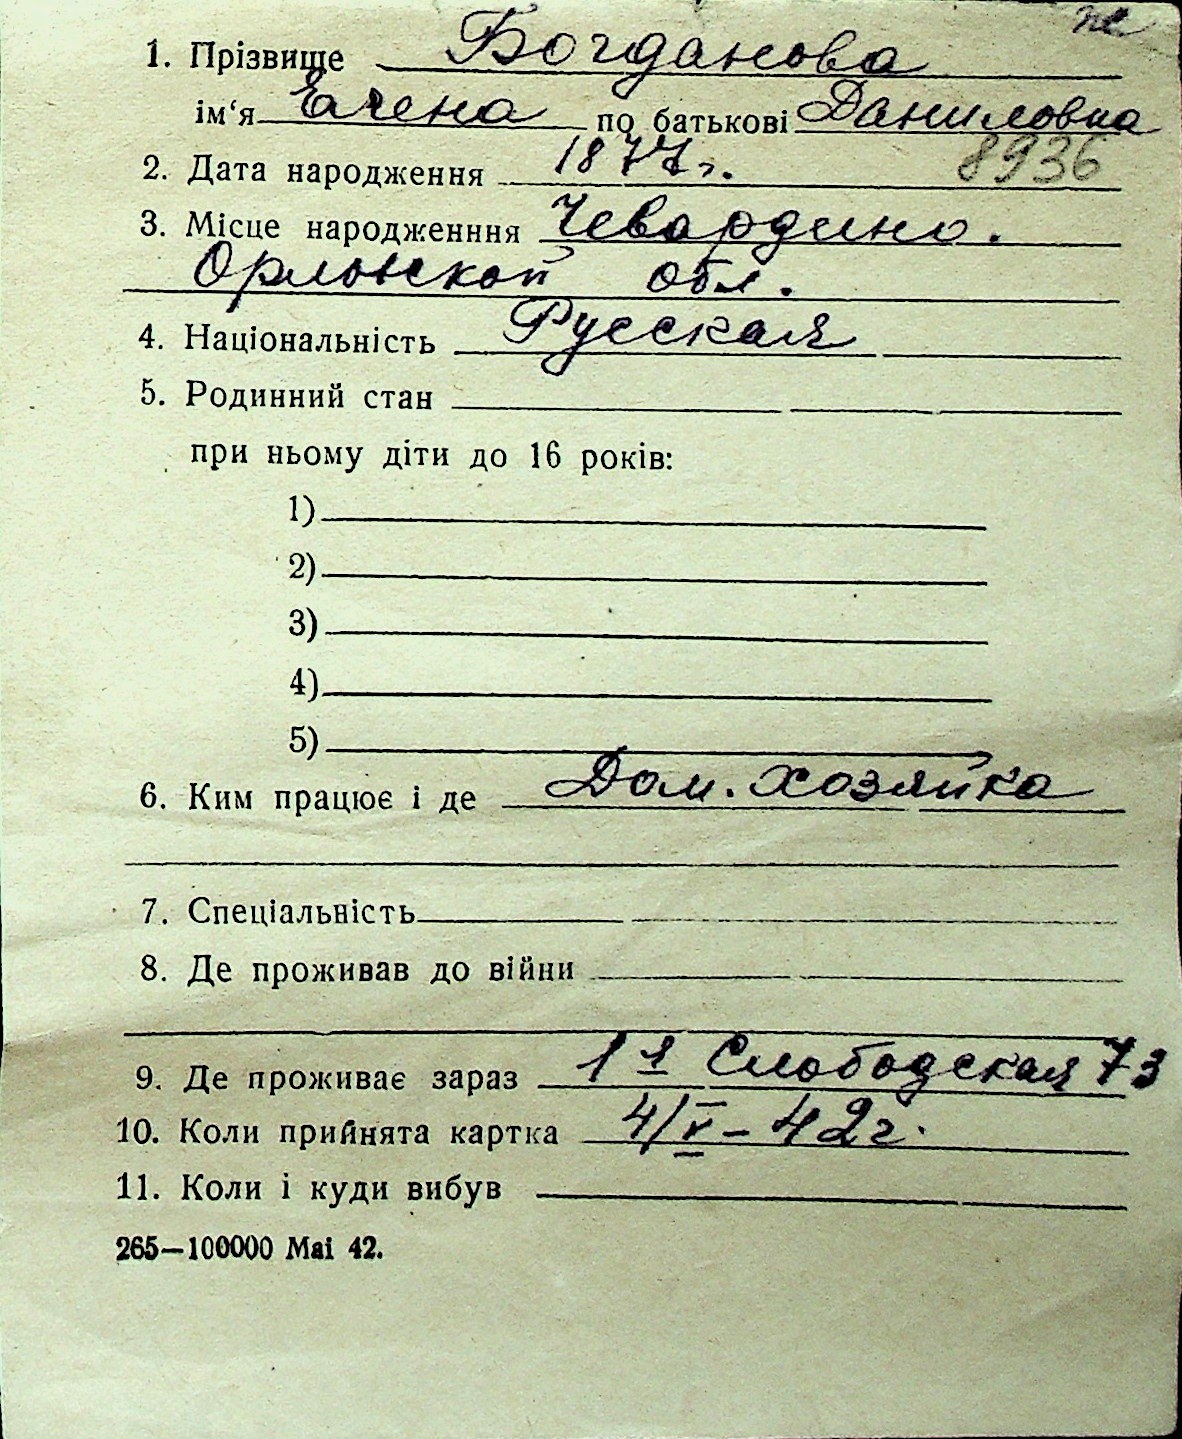 пе
1. Прізвище Богданова
ім‘я Елена по батькові Даниловна
2. Дата народження 1877 г. 8936
3. Місце народженння Чевардино.
Орловской обл.
4. Національність Русская
5. Родинний стан
при ньому діти до 16 років:
1)
2)
3)
4)
5)
6. Ким працює і де Дом. хозяйка
7. Спеціальність
8. Де проживав до війни
9. Де проживає зараз 1я Слободская 73
10. Коли прийнята картка 4/V – 42 г.
11. Коли і куди вибув
265—100000 Маі 42.